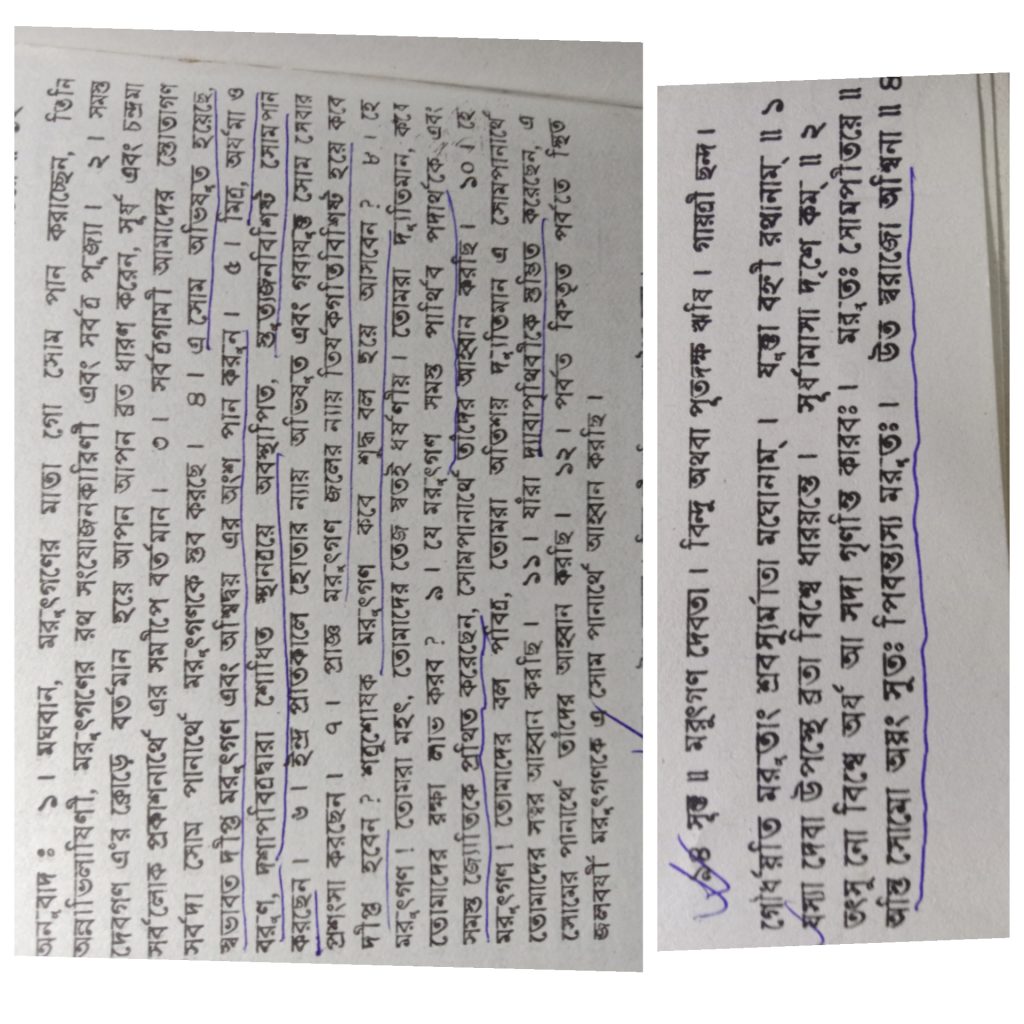 অনুবাদ ঃ ১। মঘবান, মরুৎগণের মাতা গো সোম পান করাচ্ছেন, তিনি
অন্নাভিলাষিণী, মরুৎগণের রথ সংযোজনকারিণী এবং সর্বত্র পূজ্যা। ২। সমস্ত
দেবগণ এ'র ক্রোড়ে বর্তমান হয়ে আপন আপন ব্রত ধারণ করেন, সূর্য এবং চন্দ্রমা
সর্বলোক প্রকাশনার্থে এর সমীপে বর্তমান। ৩। সর্বত্রগামী আমাদের স্তোতাগণ
সর্বদা সোম পানার্থে মরুৎগণকে স্তব করছে। ৪। এ সোম অভিষুত হয়েছে,
স্বভাবত দীপ্ত মরুৎগণ এবং অশ্বিদ্বয় এর অংশ পান করুন। ৫। মিত্র, অর্যমা ও
বরুণ, দশাপবিত্রদ্বারা শোধিত স্থানত্রয়ে অবস্থাপিত, স্তুত্যজনবিশিষ্ট সোম পান
করছেন। ৬। ইন্দ্র প্রাতঃকালে হোতার ন্যায় অভিষুত এবং গব্যযুক্ত সোম সেবার
প্রশংসা করছেন। ৭। প্রাজ্ঞ মরুৎগণ জলের ন্যায় তির্যকগতিবিশিষ্ট হয়ে কবে
দীপ্ত হবেন? শত্রুশোষক মরুৎগণ কবে শুদ্ধ বল হয়ে আসবেন? ৮। হে
মরুৎগণ! তোমরা মহৎ, তোমাদের তেজ স্বতই ধর্ষণীয়। তোমরা দ্যুতিমান, কবে
তোমাদের রক্ষা লাভ করব? ৯। যে মরুৎগণ সমস্ত পার্থিব পদার্থকে এবং
সমস্ত জ্যোতিকে প্রথিত করেছেন, সোমপানার্থে তাঁদের আহ্বান করছি। ১০। হে
মরুৎগণ! তোমাদের বল পবিত্র, তোমরা অতিশয় দ্যুতিমান এ সোমপানার্থে
তোমাদের সত্বর আহ্বান করছি। ১১। যাঁরা দ্যাবাপৃথিবীকে স্তম্ভিত করেছেন, এ
সোমের পানার্থে তাঁদের আহ্বান করছি। ১২। পর্বত বিস্তৃত পর্বতে স্থিত
জলবর্ষী মরুৎগণকে এ সোম পানার্থে আহ্বান করছি।
৯৪ সূক্ত ॥ মরুৎগণ দেবতা। বিন্দু অথবা পূতদক্ষ ঋষি। গায়ত্রী ছন্দ।
গৌর্ধয়তি মরুতাং শ্রবস্যুর্মাতা মঘোনাম্। যুক্তা বহ্নী রথানাম্ ॥ ১
যস্যা দেবা উপস্থে ব্রতা বিশ্বে ধারয়ন্তে। সূর্যামাসা দৃশে কম্ ॥ ২
তৎসু নো বিশ্বে অর্য আ সদা গৃণন্তি কারবঃ। মরুতঃ সোমপীতয়ে ॥
অস্তি সোমো অয়ং সুতঃ পিবন্ত্যস্য মরুতঃ। উত স্বরাজো অশ্বিনা ॥ ৪